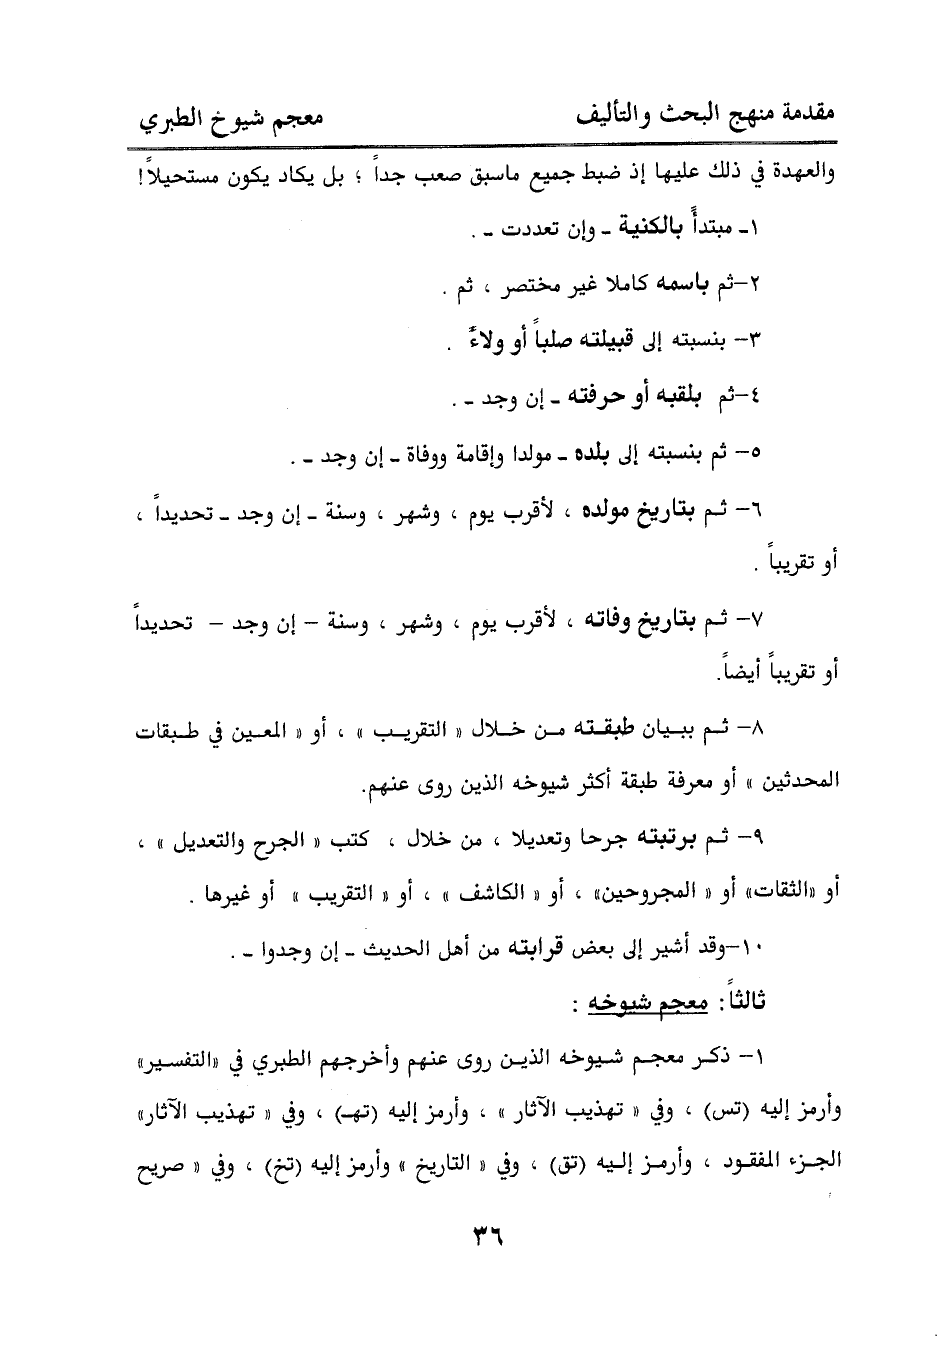 مقدمة منهج البحث والتأليف معجم شيوخ الطبري
والعهدة في ذلك عليها إذ ضبط جميع ماسبق صعب جداً ؛ بل يكاد يكون مستحيلاً !
١ـ مبتدأً بالكنية ـ وإن تعددت ـ .
٢–ثم باسمه كاملا غير مختصر ، ثم .
٣– بنسبته إلى قبيلته صلباً أو ولاءً .
٤–ثم بلقبه أو حرفته ـ إن وجد ـ .
٥– ثم بنسبته إلى بلده ـ مولدا وإقامة ووفاة ـ إن وجد ـ .
٦– ثم بتاريخ مولده ، لأقرب يوم ، وشهر ، وسنة ـ إن وجد ـ تحديداً ،
أو تقريباً .
٧– ثم بتاريخ وفاته ، لأقرب يوم ، وشهر ، وسنة – إن وجد – تحديداً
أو تقريباً أيضاً.
٨– ثم ببيان طبقته من خلال « التقريب » ، أو « المعين في طبقات
المحدثين » أو معرفة طبقة أكثر شيوخه الذين روى عنهم.
٩– ثم برتبته جرحا وتعديلا ، من خلال ، كتب « الجرح والتعديل » ،
أو «الثقات» أو « المجروحين» ، أو « الكاشف » ، أو « التقريب » أو غيرها .
١٠–وقد أشير إلى بعض قرابته من أهل الحديث ـ إن وجدوا ـ .
ثالثاً : معجم شيوخه :
١– ذكر معجم شيوخه الذين روى عنهم وأخرجهم الطبري في «التفسير»
وأرمز إليه (تس) ، وفي « تهذيب الآثار » ، وأرمز إليه (تهـ) ، وفي « تهذيب الآثار»
الجزء المفقود ، وأرمز إليه (تق) ، وفي « التاريخ » وأرمز إليه (تخ) ، وفي « صريح
٣٦